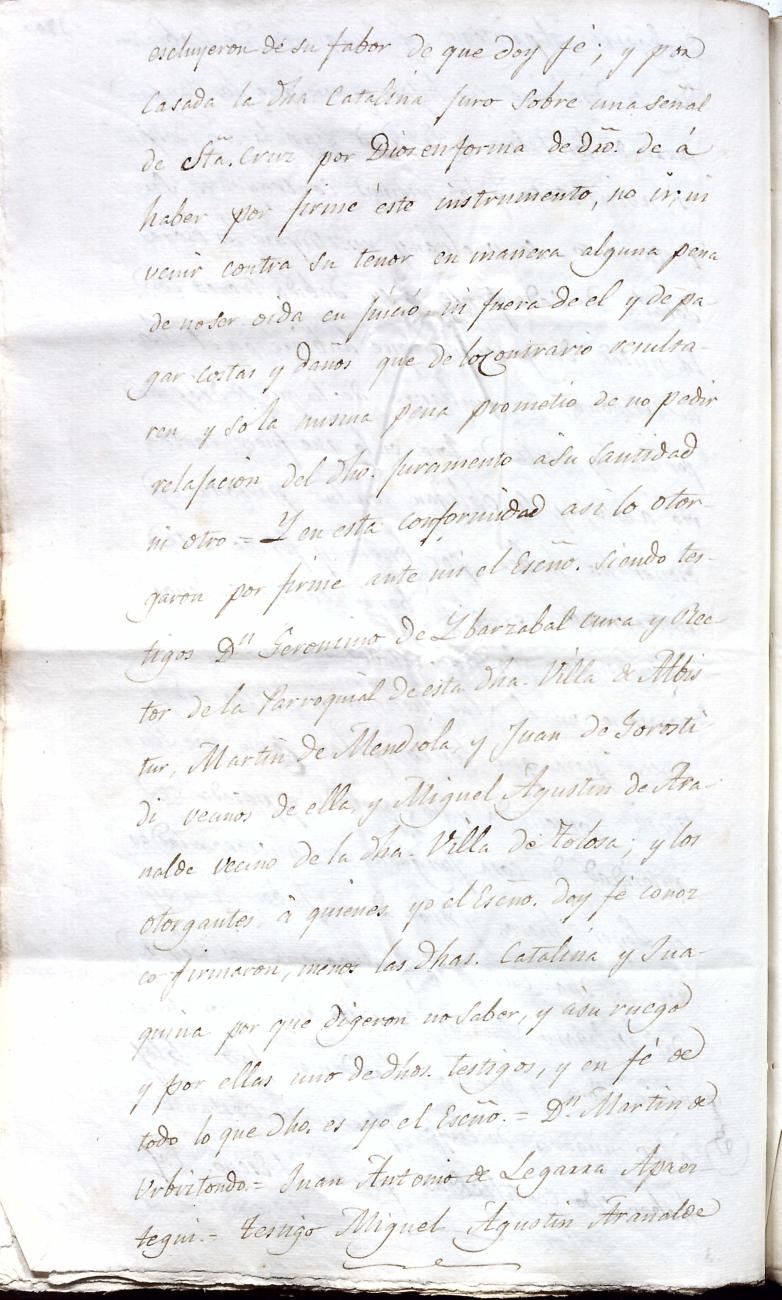 escluyeron de su fabor de que doy fé; y por
Casada la dha Catalina juro sobre una señal
de Sta. Cruz por Dios en forma de dro. de á
haber por firme éste instrumento, no ir, ni
venir contra su tenor en manera alguna pena
de no ser oida en juicio, ni fuera de el y de pa-
gar costas y daños que de lo contrario resulta-
ren y so la misma pena prometio de no pedir
relajacion del dho. juramento á su Santidad
ni otro = Y en esta conformidad asi lo otor-
garon por firme ante mi el Escño. siendo tes-
tigos Dn Geronimo de Ybarzabal cura y Rec-
tor de la Parroquial de esta dha. Villa de Albis
tur, Martin de Mendiola, y Juan de Gorosti
di vecinos de ella, y Miguel Agustin de Ara-
nalde vecino de la dha. Villa de Tolosa; y los
otorgantes, á quienes yo el Escño. doy fé conoz
co firmaron, menos las dhas. Catalina y Jua-
quina por que digeron no saber, y á su ruego
y por ellas uno de dhos. testigos, y en fé de
todo lo que dho. es yo el Escño. = Dn. Martin de
Urbiztondo = Juan Antonio de Legarra Apaez-
tegui = testigo Miguel Agustin Aranalde